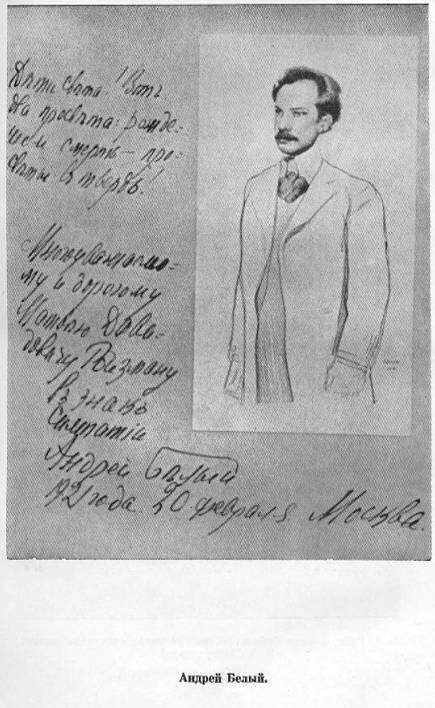 Дети света! Вотъ
два просвета: рожде-
ньем смерть — про-
светы в твердь!
Многоуважаемо-
му и дорогому
Матвею Дави-
довичу Ройзману
в знак
симпатии
Андрей Белый
1921 года 20 февраля Москва.
Андрей Белый.